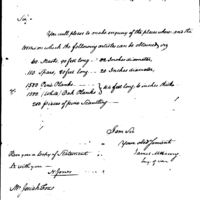 Sir,
You will please to make enquiry of the place where, and the
terms on which the following articles can be obtained, viz
60 Masts 80 feet long. 22 Inches diameter,
150 Spars, 70 feet long. 20 Inches diameter,
1500 Pine Planks
1000 (White) Oak Planks 40 feet long 4 inches thick
200 pieces of pine Scantling
I am Sir
Your obed Servant
James McHenry
Secy of War
to with you
H Jones
Mr Josiah Fox